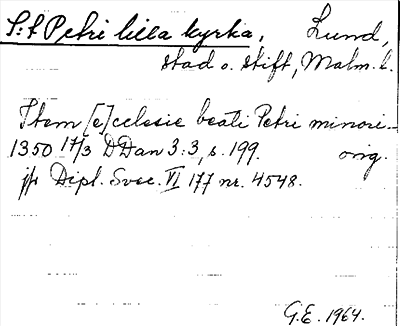 S:t Petri lilla kyrka, Lund,
stad o. stift, Malm. l.
Item [e]cclesie beati Petri minori-
1350 17/3 DDan 3:3, s. 199. orig.
jfr Dipl. Svec. VI 177 nr. 4548.
G.E. 1964.